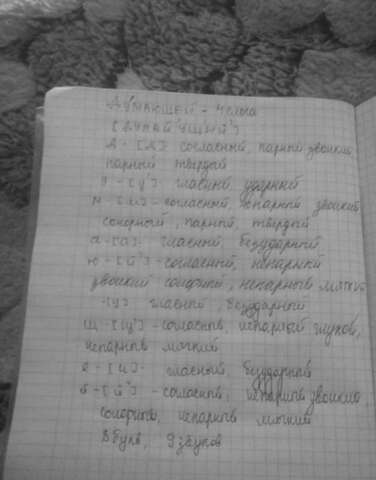 Думающей - 4 слога
[думай'ущий']
д - [д] согласный, парный звонкий
парный твердый
у - [у'] гласный ударный
м - [м] - согласный, непарный звонкий
сонорный, парный, твердый
а - [а] - гласный безударный
ю - [й'] - согласный, непарный
звонкий сонорный, непарный мягкий
[у] гласный, безударный
щ - [щ'] - согласный, непарный глухой,
непарный мягкий
е - [и] - гласный, безударный
й - [й'] - согласный, непарный звонкий
сонорный, непарный мягкий
8 букв, 9 звуков